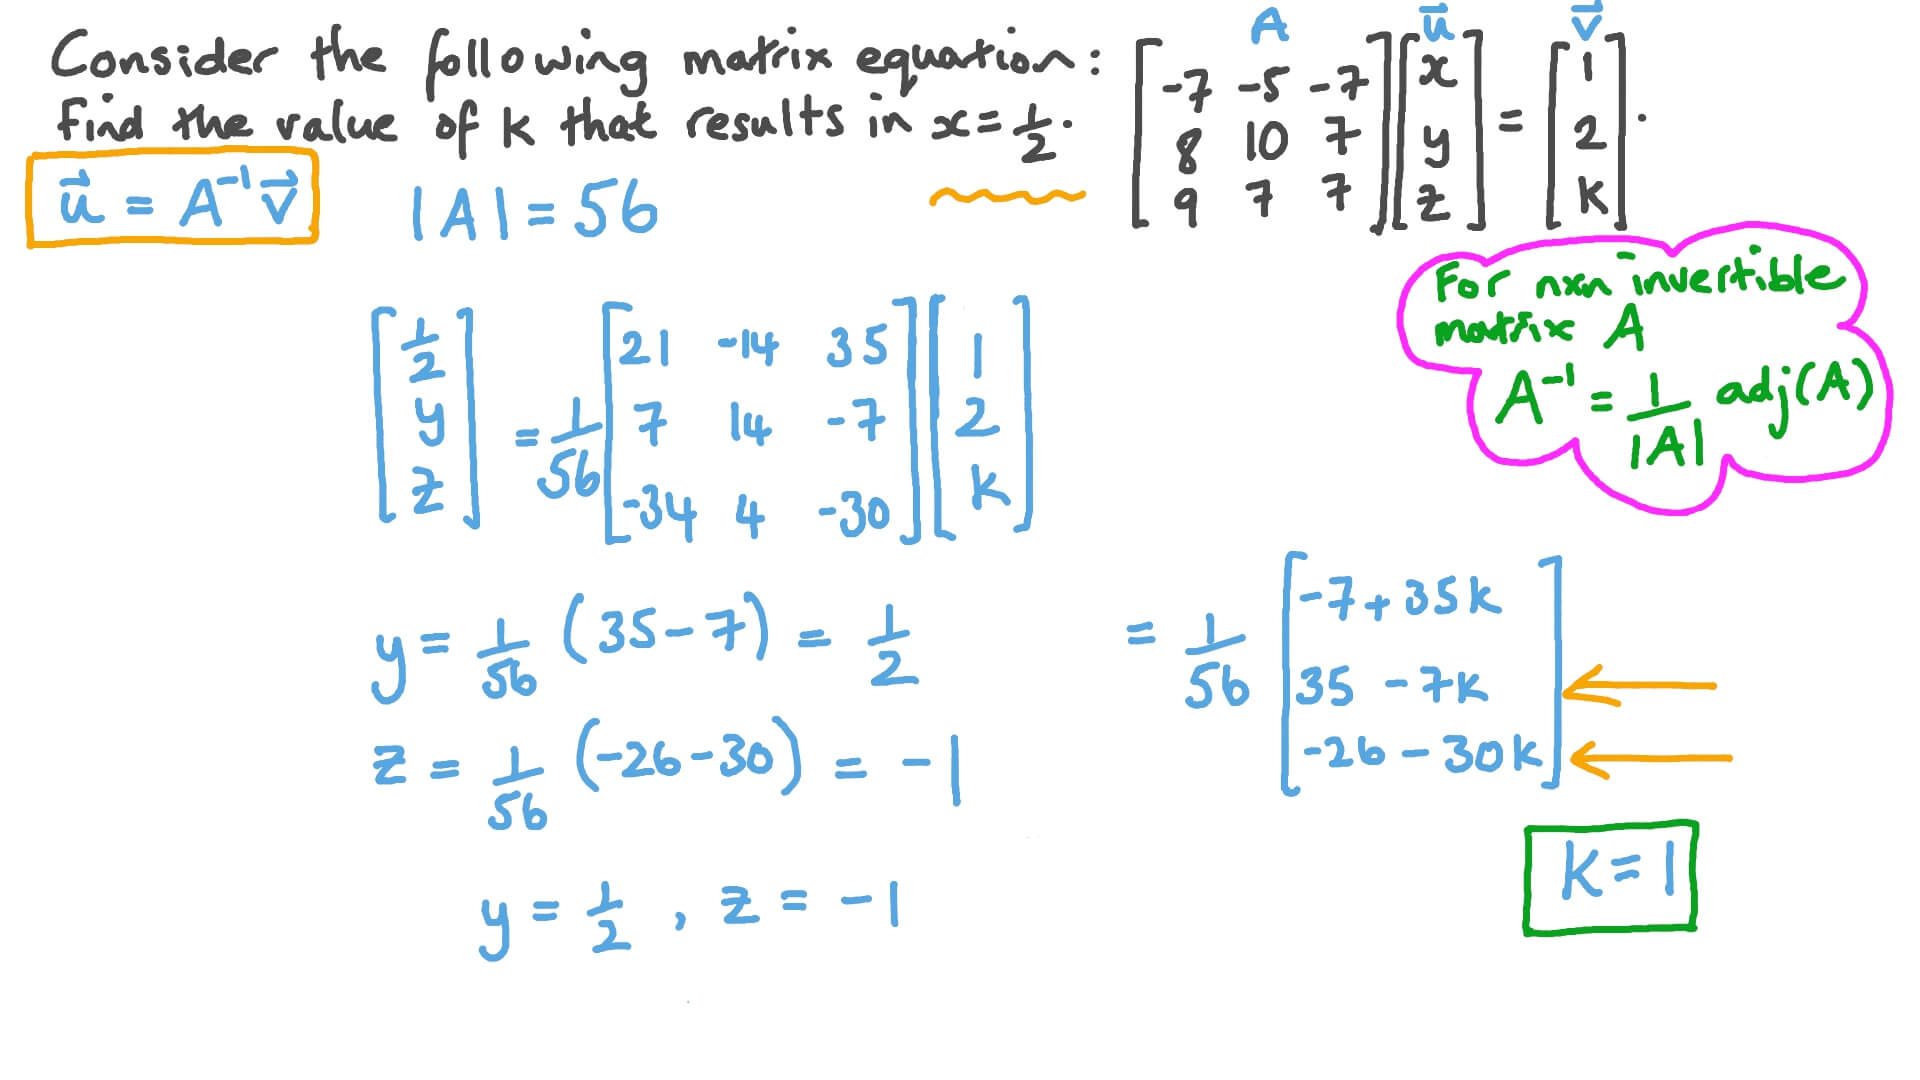 Consider the following matrix equation: [-7 -5 -7; 8 10 7; 9 7 7] [x; y; z] = [1; 2; k].
A u⃗ v⃗
find the value of k that results in x = 1/2.
u⃗ = A⁻¹v⃗ |A| = 56
For nxn invertible
matrix A
A⁻¹ = 1/|A| adj(A)
[1/2; y; z] = 1/56 [21 -14 35; 7 14 -7; -34 4 -30] [1; 2; k]
= 1/56 [-7 + 35k; 35 - 7k; -26 - 30k]
y = 1/56 (35 - 7) = 1/2
z = 1/56 (-26 - 30) = -1
k = 1
y = 1/2 , z = -1